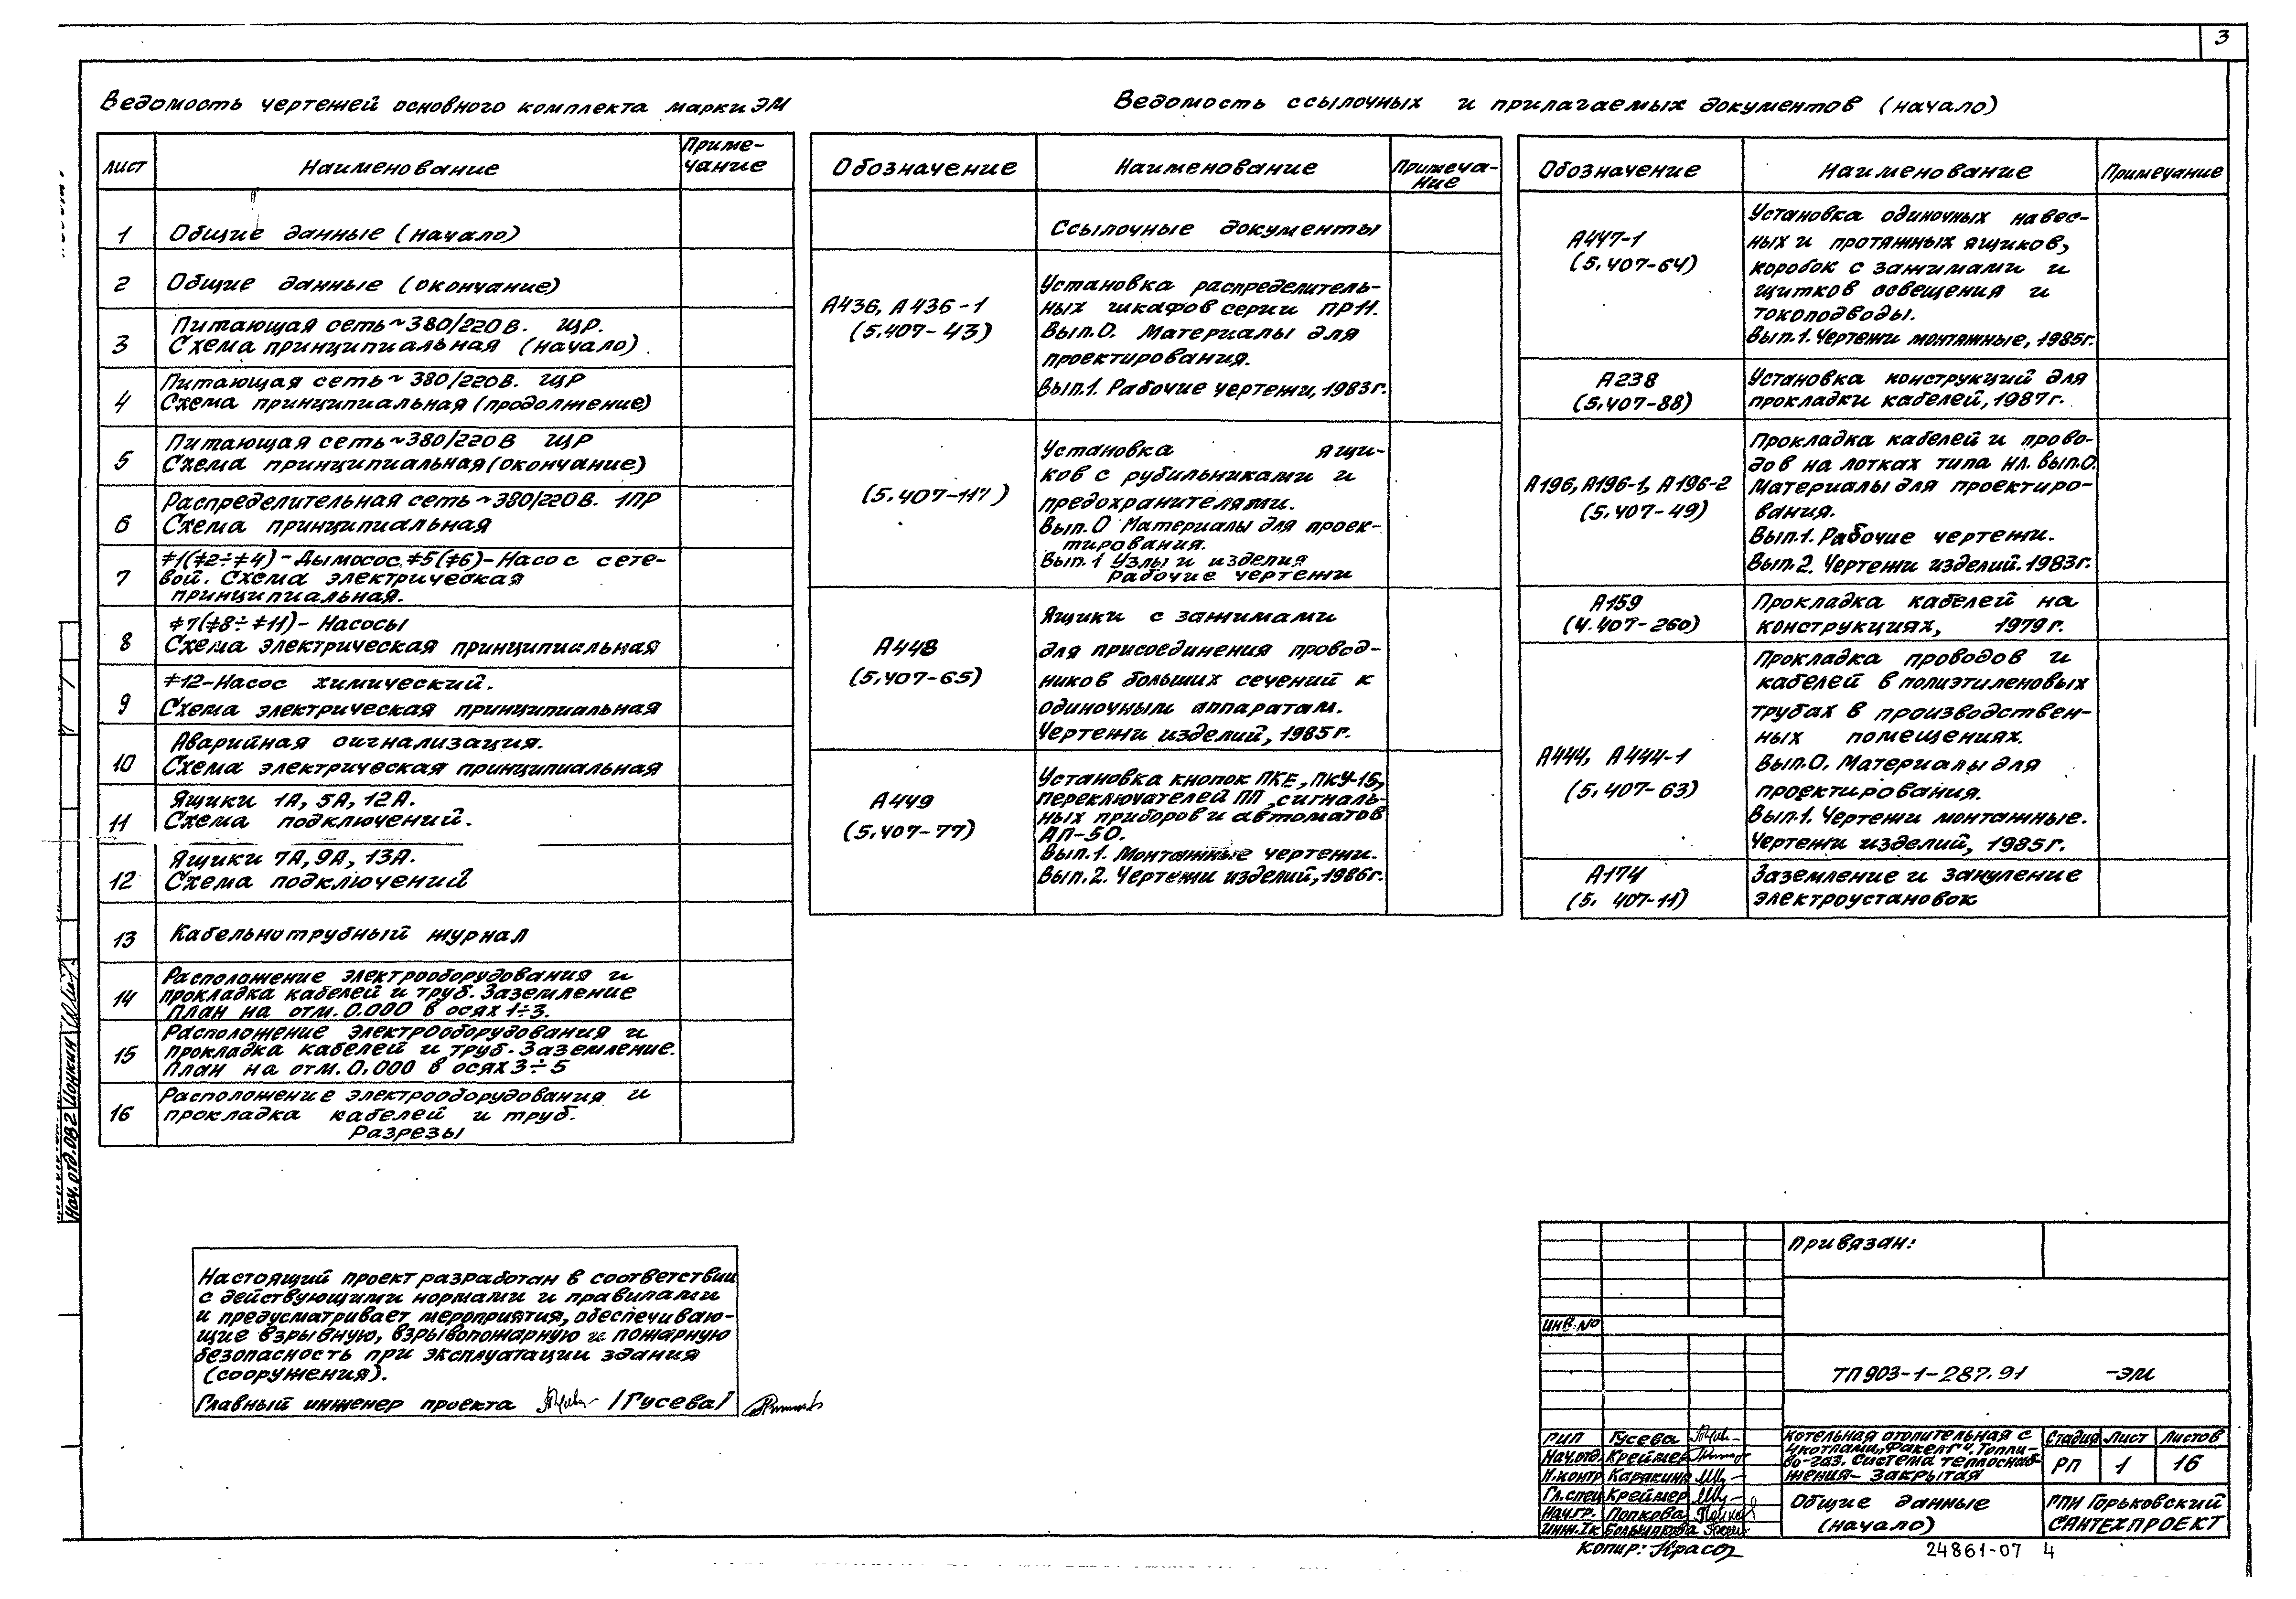 3
Ведомость чертежей основного комплекта марки ЭМ
Лист
Наименование
Приме-
чание
1
Общие данные (начало)
2
Общие данные (окончание)
3
Питающая сеть ~380/220В. ЩР.
Схема принципиальная (начало).
4
Питающая сеть ~ 380/220В. ЩР
Схема принципиальная (продолжение)
5
Питающая сеть ~380/220В ЩР
Схема принципиальная (окончание)
6
Распределительная сеть ~380/220В. 1ПР
Схема принципиальная
7
≠1(≠2÷≠4) - Дымосос. ≠5(≠6) - Насос сете-
вой. Схема электрическая
принципиальная.
8
≠7(≠8÷≠11) - Насосы
Схема электрическая принципиальная
9
≠12 - Насос химический.
Схема электрическая принципиальная
10
Аварийная сигнализация.
Схема электрическая принципиальная
11
Ящики 1А, 5А, 12А.
Схема подключений.
12
Ящики 7А, 9А, 13А.
Схема подключений
13
Кабельнотрубный журнал
14
Расположение электрооборудования и
прокладка кабелей и труб. Заземление
План на отм. 0.000 в осях 1÷3.
15
Расположение электрооборудования и
прокладка кабелей и труб. Заземление.
План на отм. 0.000 в осях 3÷5
16
Расположение электрооборудования и
прокладка кабелей и труб.
Разрезы
Ведомость ссылочных и прилагаемых документов (начало)
Обозначение
Наименование
Примеча-
ние
Ссылочные документы
А436, А436-1
(5.407-43)
Установка распределитель-
ных шкафов серии ПР11.
Вып.0. Материалы для
проектирования.
Вып.1. Рабочие чертежи, 1983г.
(5.407-117)
Установка ящи-
ков с рубильниками и
предохранителями.
Вып.0 Материалы для проек-
тирования.
Вып.1 Узлы и изделия
Рабочие чертежи
А448
(5.407-65)
Ящики с зажимами
для присоединения провод-
ников больших сечений к
одиночным аппаратам.
Чертежи изделий, 1985г.
А449
(5.407-77)
Установка кнопок ПКЕ, ПКУ-15,
переключателей ПП, сигналь-
ных приборов и автоматов
АП-50.
Вып.1. Монтажные чертежи.
Вып.2. Чертежи изделий, 1986г.
Обозначение
Наименование
Примечание
А447-1
(5.407-64)
Установка одиночных навес-
ных и протяжных ящиков,
коробок с зажимами и
щитков освещения и
токоподводы.
Вып.1. Чертежи монтяжные, 1985г.
А238
(5.407-88)
Установка конструкций для
прокладки кабелей, 1987г.
А196, А196-1, А196-2
(5.407-49)
Прокладка кабелей и прово-
дов на лотках типа НЛ. Вып.0.
Материалы для проектиро-
вания.
Вып.1. Рабочие чертежи.
Вып.2. Чертежи изделий. 1983г.
А159
(4.407-260)
Прокладка кабелей на
конструкциях, 1979г.
А444, А444-1
(5.407-63)
Прокладка проводов и
кабелей в полиэтиленовых
трубах в производствен-
ных помещениях.
Вып.0. Материалы для
проектирования.
Вып.1. Чертежи монтажные.
Чертежи изделий, 1985г.
А174
(5. 407-11)
Заземление и зануление
электроустановок
Нач. отд. ОВ2 Цоцкин
Настоящий проект разработан в соответствии
с действующими нормами и правилами
и предусматривает мероприятия, обеспечиваю-
щие взрывную, взрывопожарную и пожарную
безопасность при эксплуатации здания
(сооружения).
Главный инженер проекта /Гусева/
Привязан:
ИНВ.№
ТП 903-1-287.91 -ЭМ
ГИП Гусева
Нач.отд. Креймер
Н.контр Карякина
Гл.спец Креймер
Нач.гр. Попкова
Инж.Iк Большакова
Котельная отопительная с
4 котлами „Факел-Г“. Топли-
во-газ. Система теплоснаб-
жения - закрытая
Стадия Лист Листов
РП 1 16
Общие данные
(начало)
ГПИ Горьковский
САНТЕХПРОЕКТ
Копир:
24861-07 4